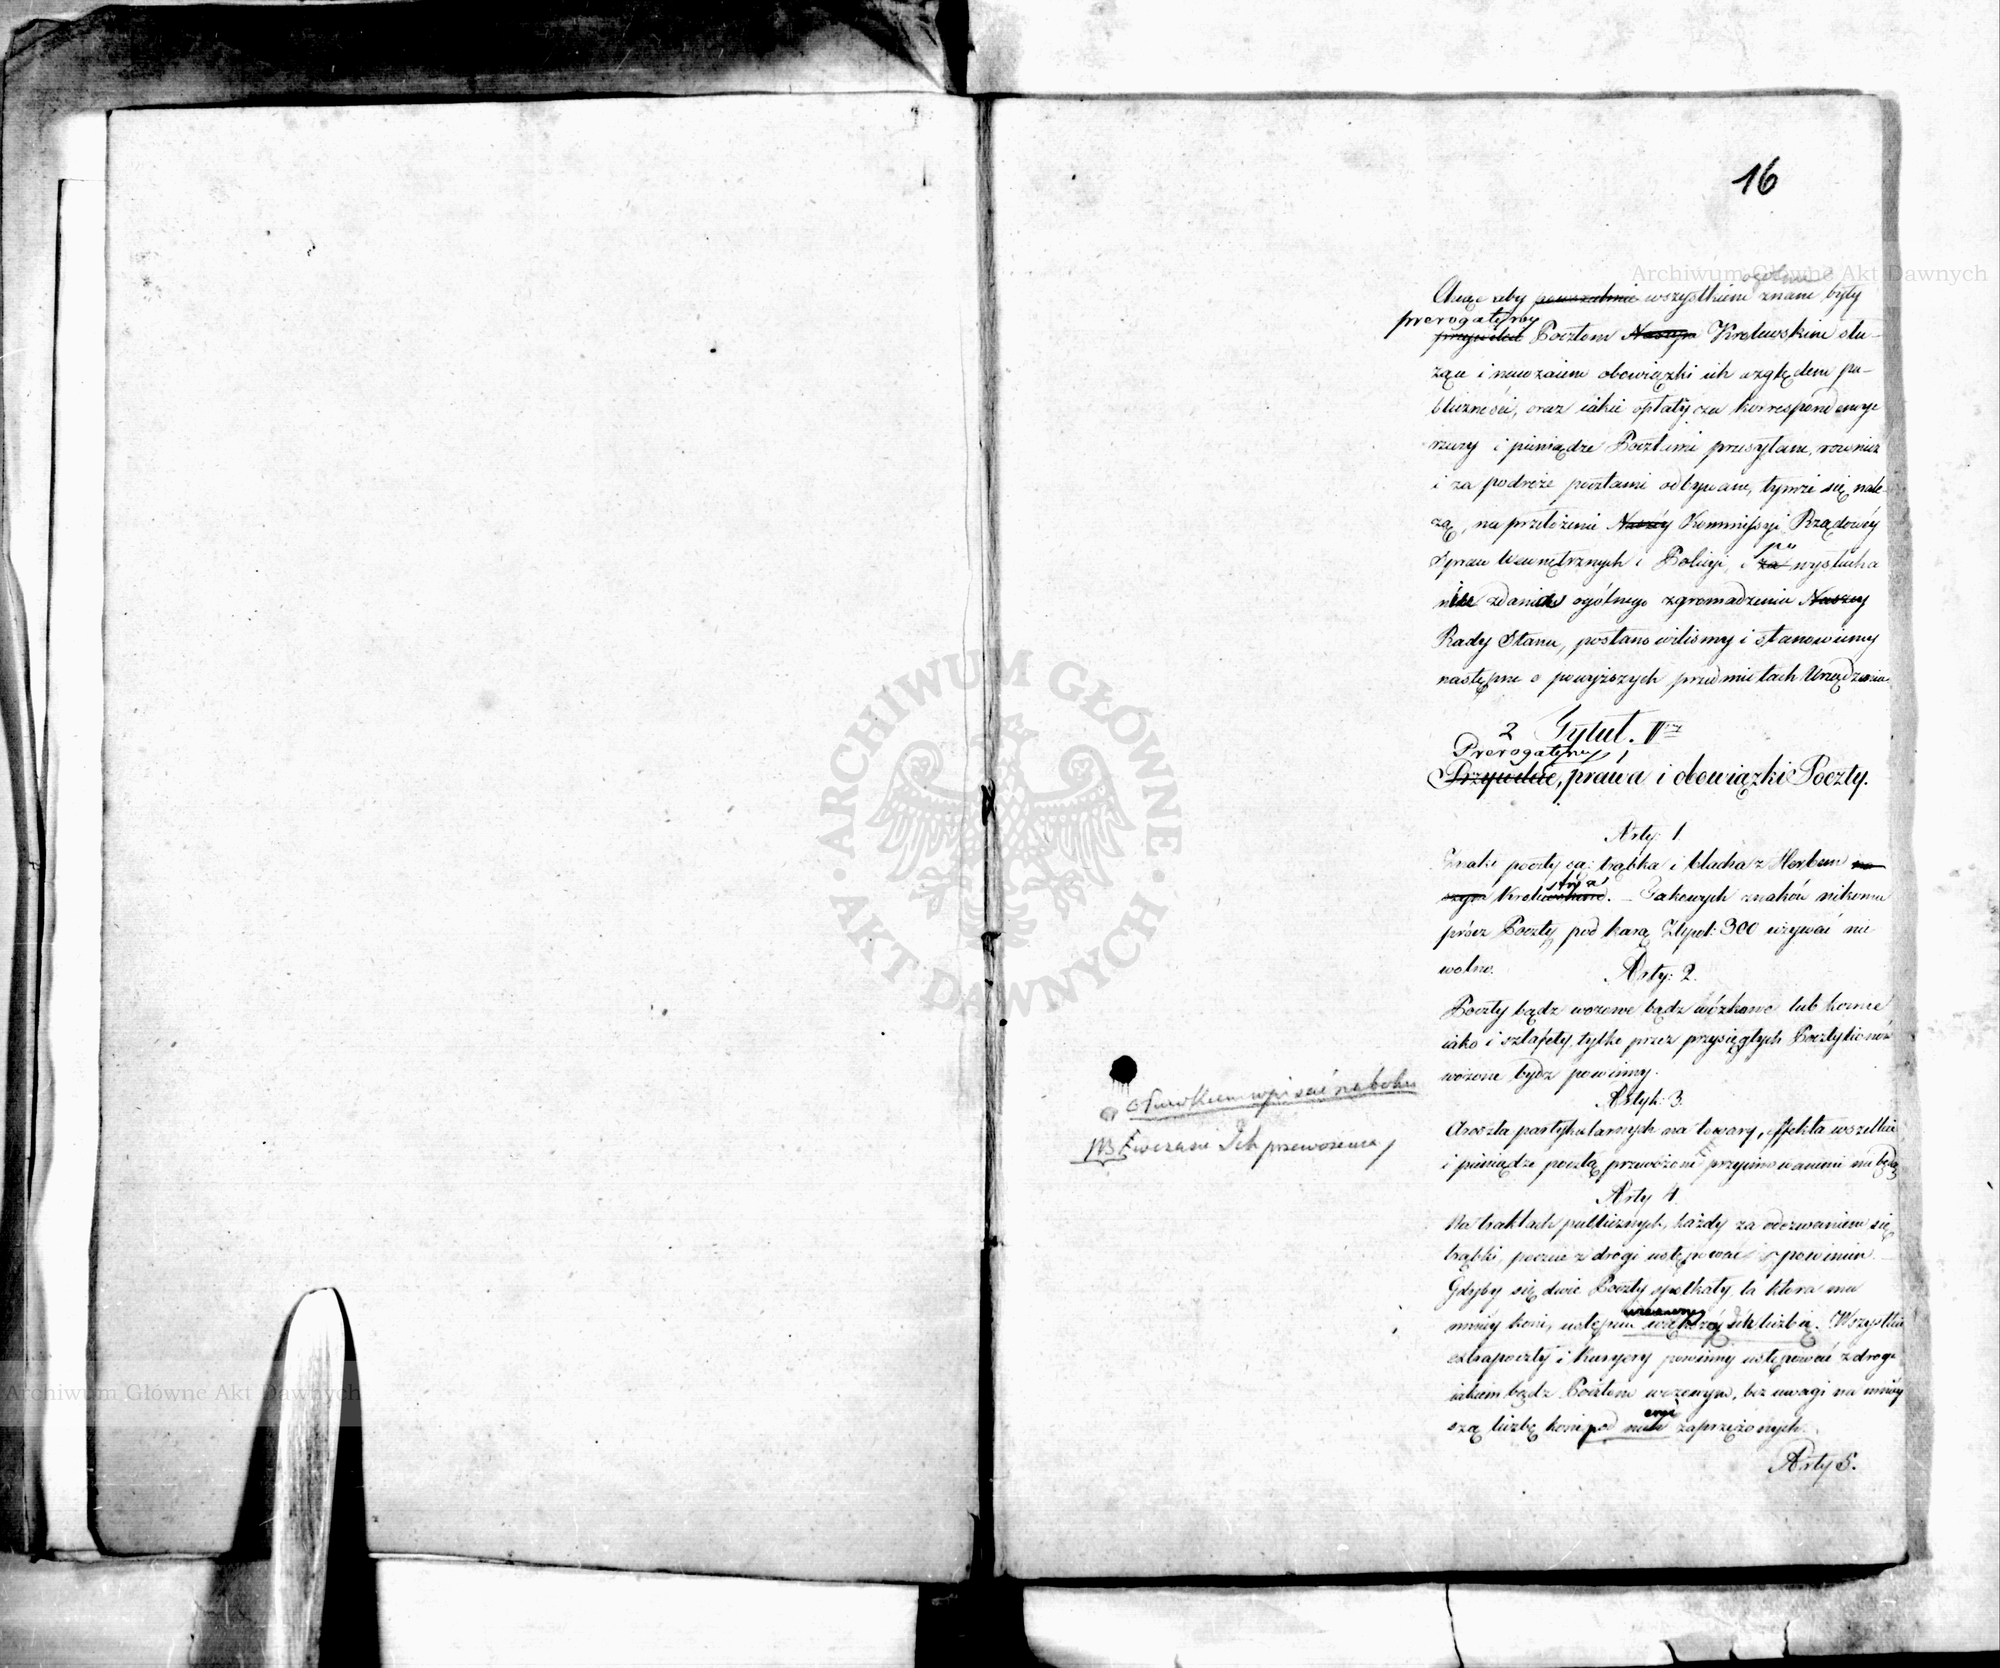 16
Archiwum Główne Akt Dawnych
Chcąc żeby powszechnie wszystkiem znane były
prerogatywy
przywileie Pocztom Naszym Krolewskim słu-
żące i nawzaiem obowiązki ich względem pu-
bliczności, oraz iakie opłaty za korrespondencye
rzeczy i pieniądze Pocztami przesyłane, rownież
i za podroże pocztami odbywane, tymże się nale-
żą, na przełożenie Naszéy Kommissyi Rządowéy
Spraw Wewnętrznych i Policyi, i za wysłucha
po
zdania ogólnego zgromadzenia Naszey
Rady Stanu, postanowilismy i stanowiemy
następne o powyższych przedmiotach Urządzenia
2 Tytuł. II
Prerogatywy
Przywileie, prawa i obowiązki Poczty.
Arty: 1
Znaki poczty są: trąbka i blacha z Herbem na
szym Krolewskim. – Takowych znaków nikomu
stwa
prócz Poczty pod karą Złpol: 300 używać nie
wolno.
Arty: 2.
Poczty bądz wozowe bądz wózkowe lub konne
iako i sztafety, tylko przez przysięgłych Pocztylionów
wożone bydz powinny.
Artyk: 3.
Areszta partykularnych na towary, effekta wszelkie
i pieniądze pocztą przewożone przyimowanemi nie będą
ołuwkiem wpisać na boku
NB w czasie Ich przewożenia
Arty 4.
Na traktach publicznych, każdy za odezwaniem się
trąbki, poczcie z drogi ustępować powinien.
Gdyby się dwie Poczty spotkały, ta ktora ma
mniéy koni, ustąpi większéy ich liczbie. Wszystkie
extrapoczty i kuryery powinny ustępować z drogi
iakim bądz Pocztom wozowym, bez uwagi na mniéy
szą liczbę koni pod niele zaprzężonych.
Arty 5.
ARCHIWUM GŁÓWNE · AKT DAWNYCH ·
Archiwum Główne Akt Dawnych